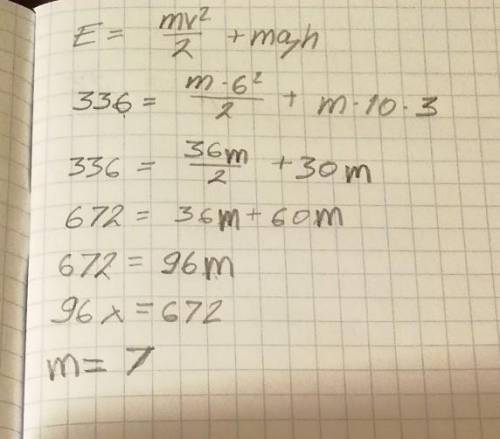 E = mv²/2 + mgh
336 = m·6²/2 + m·10·3
336 = 36m/2 + 30m
672 = 36m + 60m
672 = 96m
96x = 672
m = 7